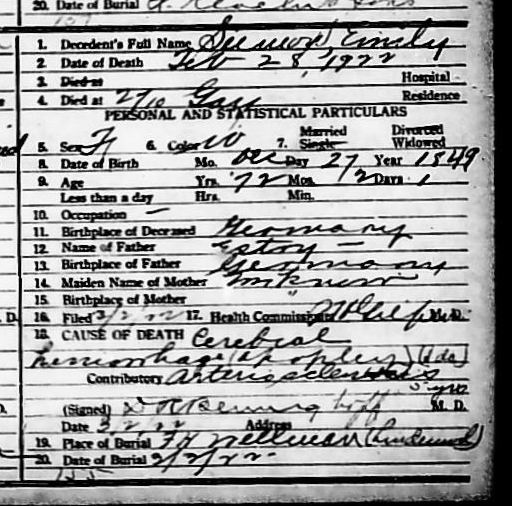 20. Date of Burial
1. Decedent's Full Name Emily
2. Date of Death Feb 28, 1922
3. Died at Hospital
4. Died at 2710 Gass Residence
PERSONAL AND STATISTICAL PARTICULARS
Married Divorced
5. Sex F 6. Color W 7. Single Widowed
8. Date of Birth Mo. Dec Day 27 Year 1849
9. Age Yrs. 72 Mos. 2 Days 1
Less than a day Hrs. Min.
10. Occupation —
11. Birthplace of Deceased Germany
12. Name of Father —
13. Birthplace of Father Germany
14. Maiden Name of Mother unknown
15. Birthplace of Mother "
16. Filed 3/2/22 17. Health Commissioner M. D.
18. CAUSE OF DEATH Cerebral
hemorrhage (apoplexy) (1 da)
Contributory Arteriosclerosis
5 yrs
(Signed) M. D.
Date 3/2/22 Address
19. Place of Burial
20. Date of Burial 3/2/22